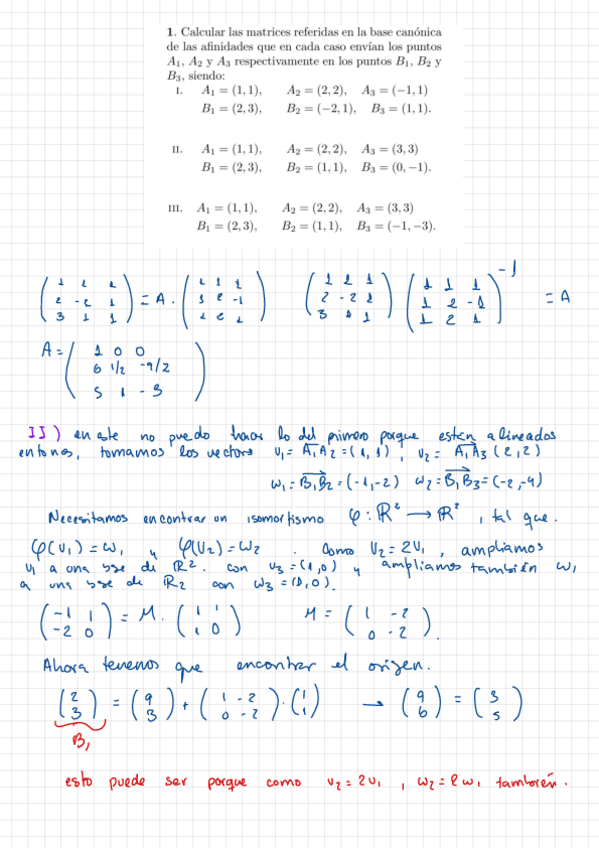 1. Calcular las matrices referidas en la base canónica
de las afinidades que en cada caso envían los puntos
A₁, A₂ y A₃ respectivamente en los puntos B₁, B₂ y
B₃, siendo:
I. A₁ = (1, 1), A₂ = (2, 2), A₃ = (−1, 1)
B₁ = (2, 3), B₂ = (−2, 1), B₃ = (1, 1).
II. A₁ = (1, 1), A₂ = (2, 2), A₃ = (3, 3)
B₁ = (2, 3), B₂ = (1, 1), B₃ = (0, −1).
III. A₁ = (1, 1), A₂ = (2, 2), A₃ = (3, 3)
B₁ = (2, 3), B₂ = (1, 1), B₃ = (−1, −3).
( 1 1 1 ) ( 1 1 1 ) ( 1 1 1 ) ( 1 1 1 ) -1
( 2 -2 1 ) = A · ( 1 2 -1 ) ( 2 -2 1 ) ( 1 2 -1 ) = A
( 3 1 1 ) ( 1 2 1 ) ( 3 1 1 ) ( 1 2 1 )
( 1 0 0 )
A = ( 6 1/2 -9/2 )
( 5 1 -3 )
II) en este no puedo hacer lo del primero porque están alineados
entonces, tomamos los vectores v₁ = A₁A₂ = (1, 1), v₂ = A₁A₃ (2, 2)
w₁ = B₁B₂ = (-1, -2) w₂ = B₁B₃ = (-2, -4)
Necesitamos encontrar un isomorfismo φ : ℝ² → ℝ², tal que.
φ(v₁) = w₁ y φ(v₂) = w₂. Como v₂ = 2v₁, ampliamos
v₁ a una bse de ℝ². con v₃ = (1, 0) y ampliamos también w₁
a una bse de ℝ₂ con w₃ = (1, 0).
( -1 1 ) = M · ( 1 1 ) M = ( 1 -2 )
( -2 0 ) ( 1 0 ) ( 0 -2 ).
Ahora tenemos que encontrar el origen.
( 2 ) = ( a ) + ( 1 -2 ) · ( 1 ) → ( a ) = ( 3 )
( 3 ) ( b ) ( 0 -2 ) ( 1 ) ( b ) ( 5 )
B₁
esto puede ser porque como v₂ = 2v₁, w₂ = 2w₁ también.